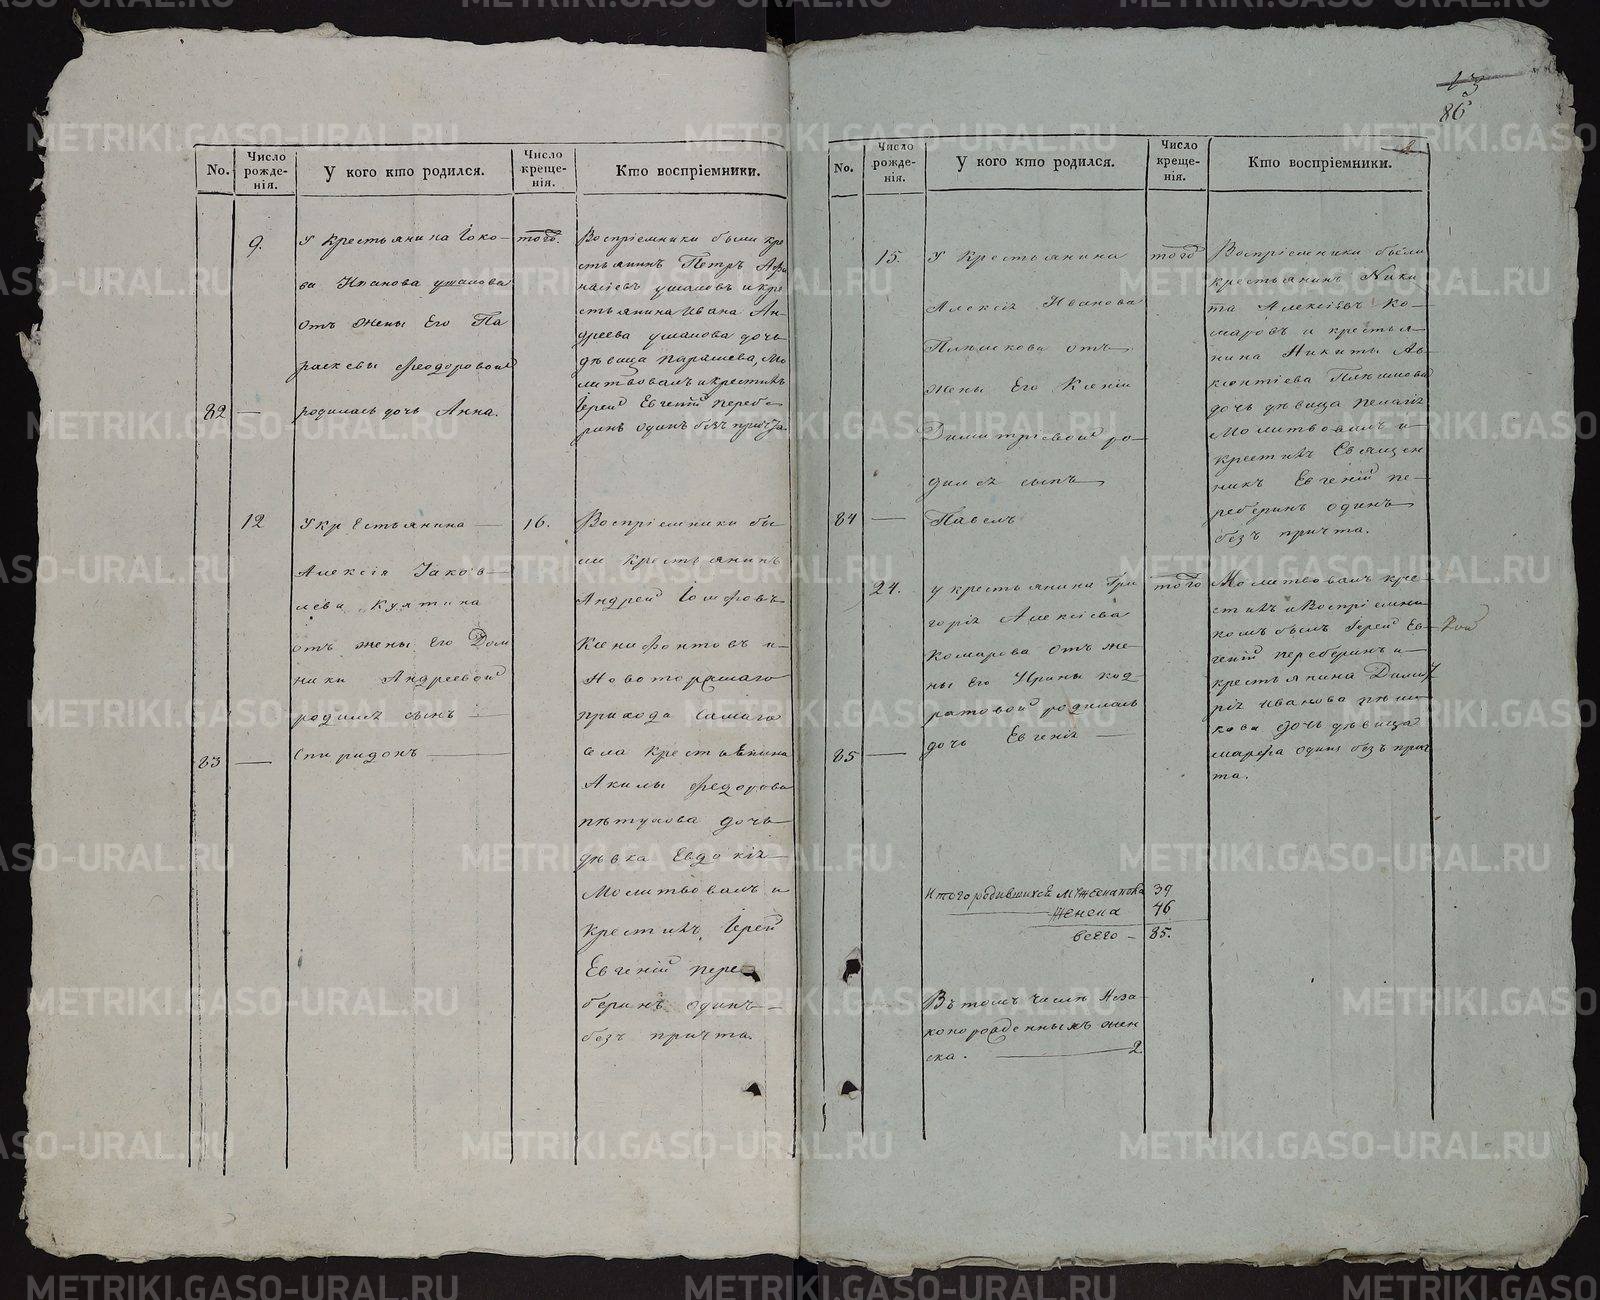 No.
Число рожде-нія.
У кого кто родился.
Число креще-нія.
Кто воспріемники.
9.
У крестьянина Іако-
ва Иванова ушакова
отъ жены Его Па
раскевы Феодоровой
82 — родилась дочь Анна.
того.
Воспріемники были кре
стьянинъ Петръ Афа
насіевъ ушаковъ и кре
стьянина Ивана Ан-
дреева ушакова дочь
дѣвица Парашева, Мо
литвовалъ и крестилъ
Іерей Евгеній перебе-
ринъ одинъ безъ причта.
12
У крЕстьянина —
Алексія Іаков-
лева Култина
отъ жены Его Дом
ники Андреевой
родился сынъ —
83 — Спиридонъ —
16.
Воспріемники бы
ли крестьянинъ
Андрей Іосифовъ
Ксенифонтовъ и
Новоторашаго
прихода самаго
села крестьянина
Акилы Федорова
пѣтухова дочь
дѣвка Евдокія
Молитвовалъ и
крестилъ Іерей
Евгеній пере
беринъ одинъ —
безъ причта.
13
86
No.
Число рожде-нія.
У кого кто родился.
Число креще-нія.
Кто воспріемники.
15.
У крестьянина
Алексія Иванова
Пльшкова отъ
жены Его Ксеніи
Димитріевой ро-
дился сынъ
84 — Павелъ
того
Воспріемники были
крестьянинъ Ники
та Алексіевъ Ко-
маровъ и крестья-
нина Никиты Ав-
ксентіева Плѣшкова
дочь дѣвица пелагія
Молитвовалъ и
крестилъ Священ
никъ Евгеній пе-
реберинъ одинъ
безъ причта.
24.
у крестьянина Гри
горія Алексіева
Комарова отъ же-
ны Его Ирины код
ратовой родилась
85 — дочь Евгенія —
того
Молитвовалъ кре-
стилъ и Воспріемни
комъ былъ Іерей Ев-
геній переберинъ и
крестьянина Димит
рія иванова плѣш
кова дочь дѣвица
марфа одинъ безъ прич
та.
Итого родившихся Мужеска пола 39
Женска 46
всего — 85.
Въ томъ числѣ Неза
коннорожденныхъ жен
ска. — 2
METRIKI.GASO-URAL.RU